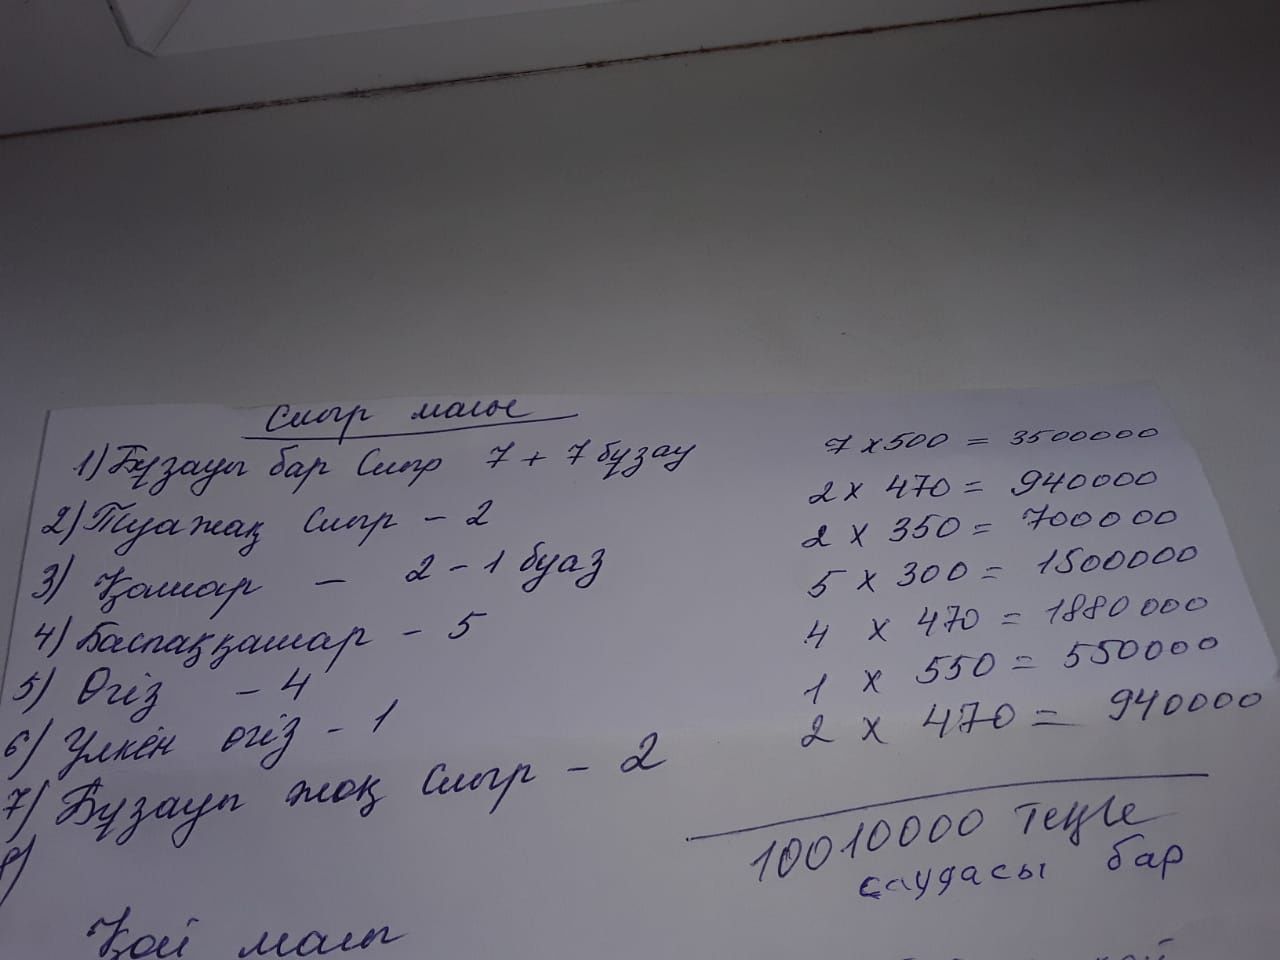 Сиыр малы
1) Бұзауы бар Сиыр 7 + 7 бұзау 7 x 500 = 3500000
2) Туажақ Сиыр - 2 2 x 470 = 940000
3) Қашар - 2 - 1 буаз 2 x 350 = 700000
4) Баспаққашар - 5 5 x 300 = 1500000
5) Өгіз - 4 4 x 470 = 1880000
6) Үлкен өгіз - 1 1 x 550 = 550000
7) Бұзауы жоқ Сиыр - 2 2 x 470 = 940000
8)
10010000 теңге
саудасы бар
Қой малы